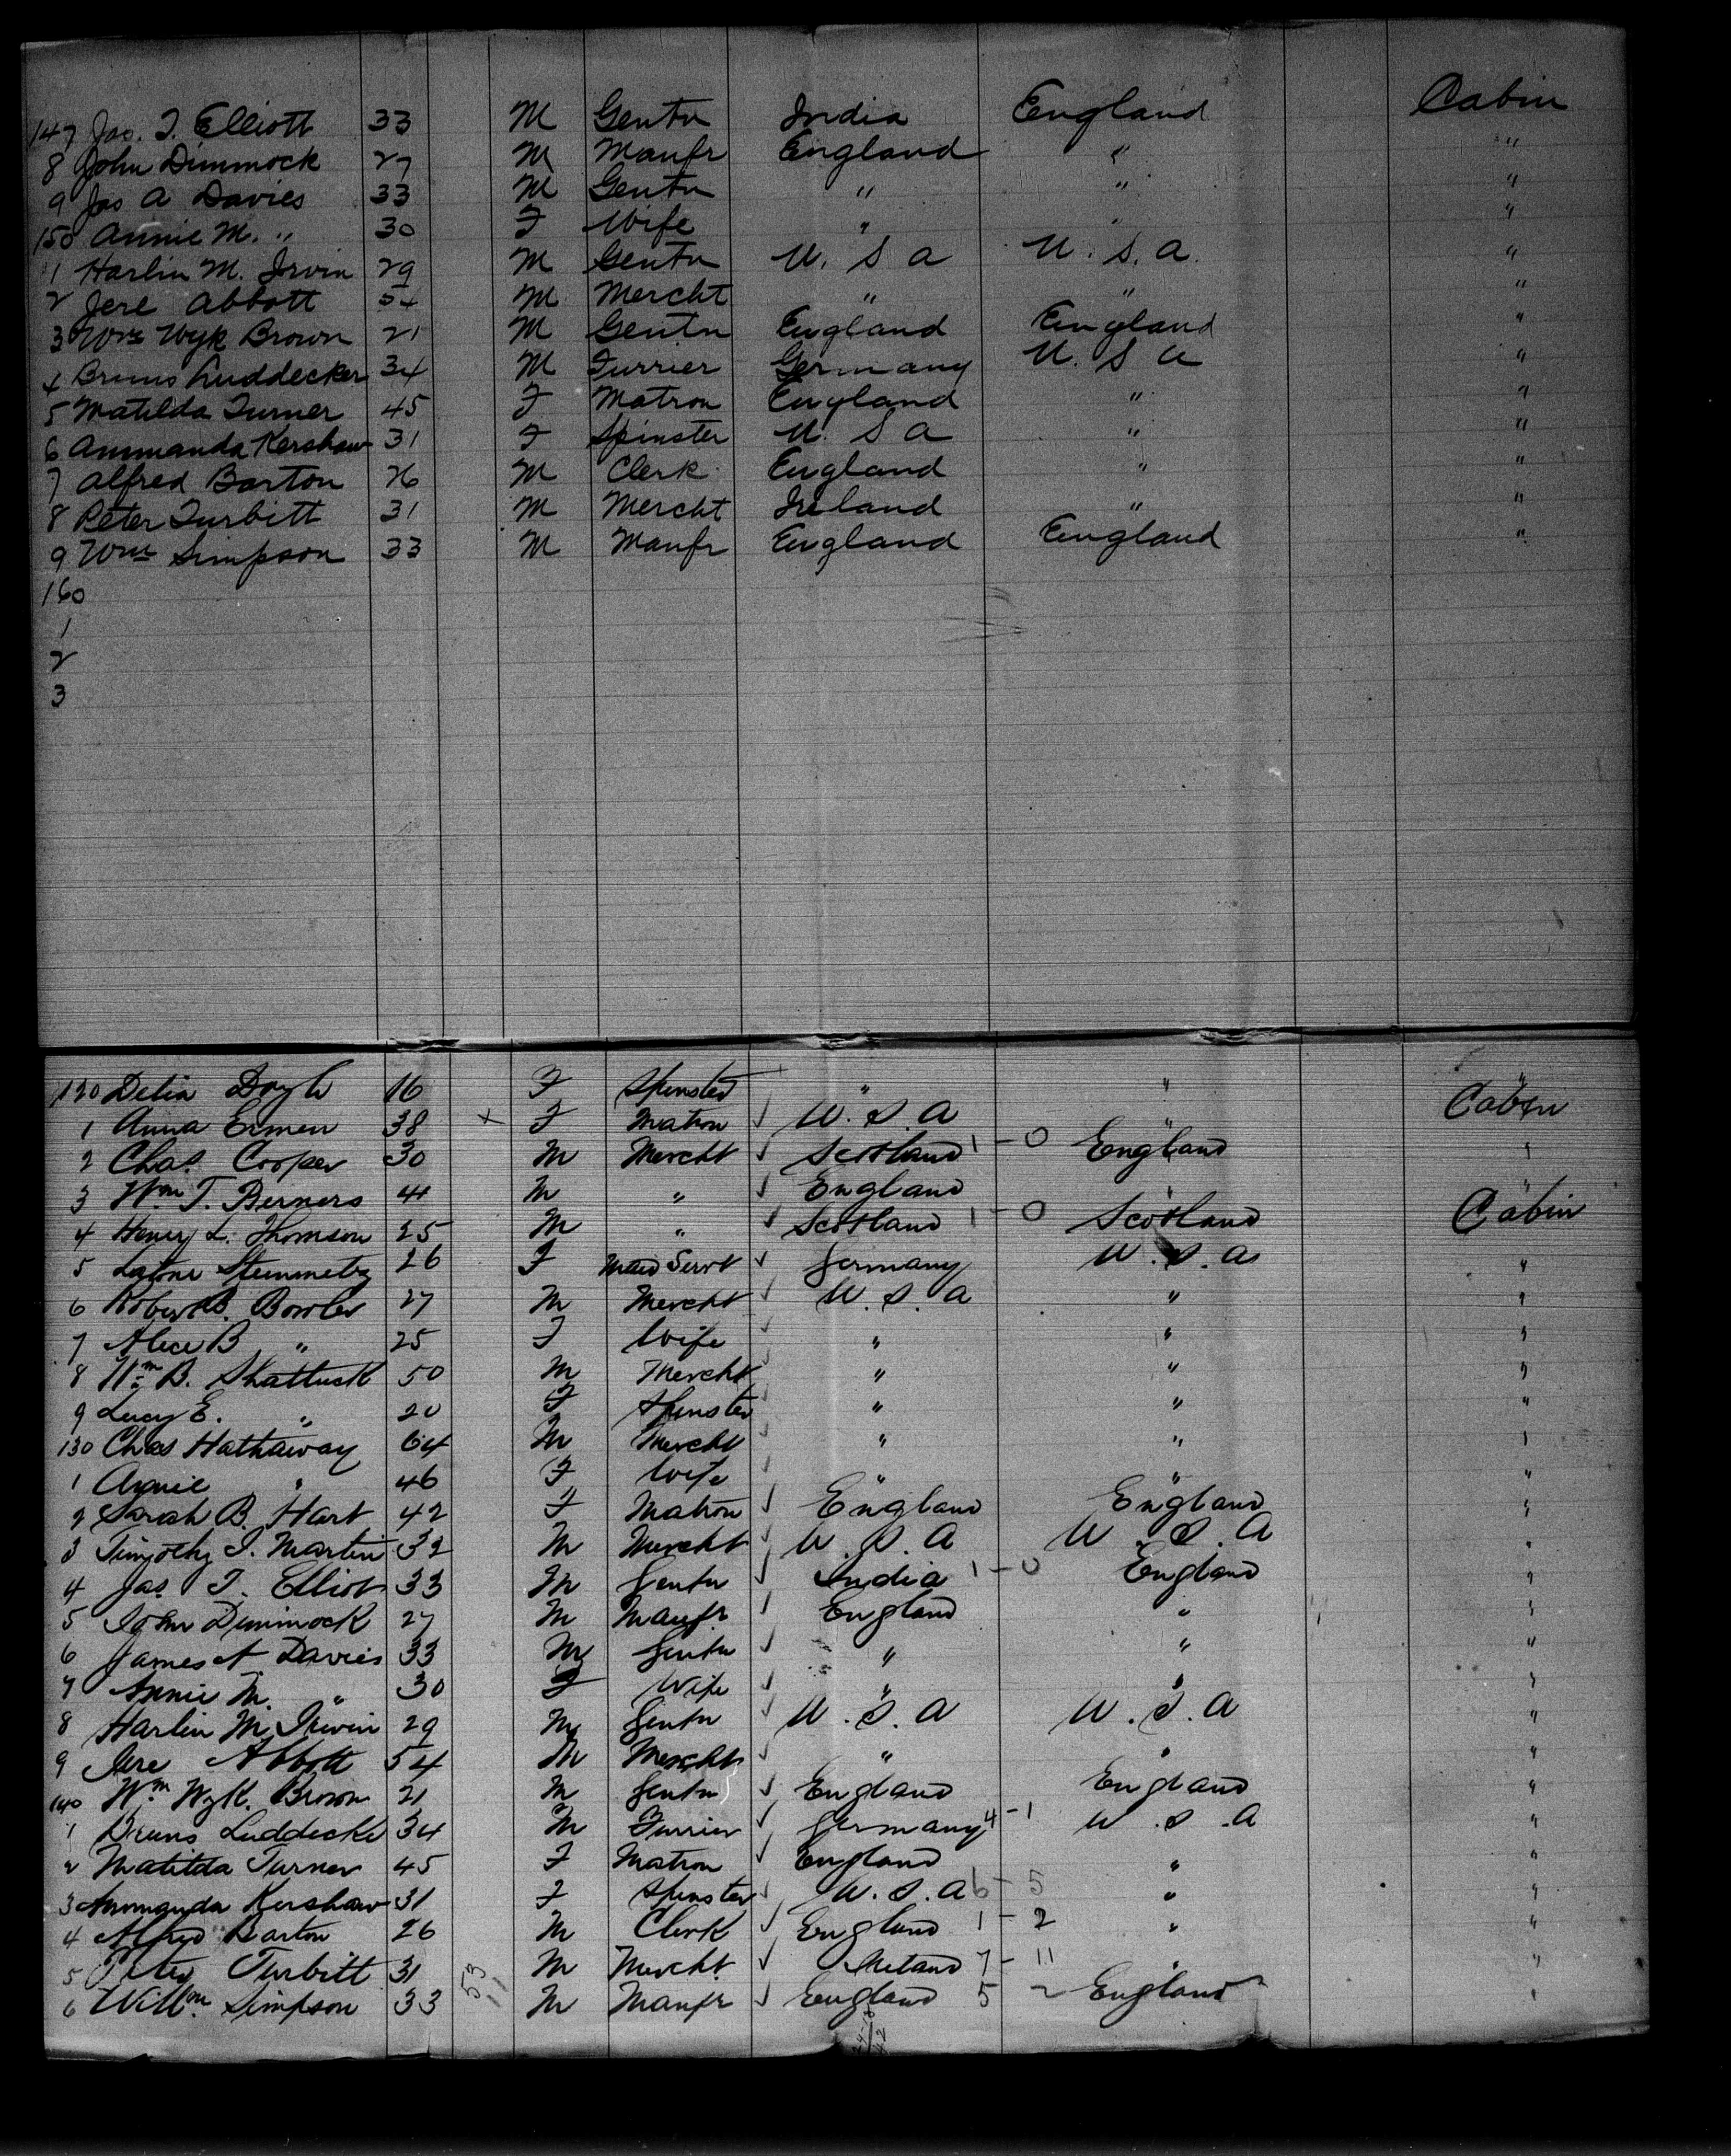 147 Jas. T. Elliott 33 M Gentn India England Cabin
8 John Dimmock 27 M Manfr England " "
9 Jas A Davies 33 M Gentn " " "
150 Annie M. " 30 F Wife " " "
1 Harlin M. Irvin 29 M Gentn U. S A U. S. A. "
2 Jere Abbott 54 M Mercht " " "
3 Wm Wyk Brown 21 M Gentn England England "
4 Bruns Luddecker 34 M Furrier Germany U. S A "
5 Matilda Turner 45 F Matron England " "
6 Ammanda Kershaw 31 F Spinster U. S A " "
7 Alfred Barton 26 M Clerk England " "
8 Peter Turbitt 31 M Mercht Ireland " "
9 Wm Simpson 33 M Manfr England England "
160
1
2
3
120 Delia Doyle 16 F Spinster " " "
1 Anna Ermen 38 x F Matron U. S. A " Cabin
2 Chas. Cooper 30 M Mercht Scotland 1 - 0 England "
3 Wm T. Berners 41 M " England " "
4 Henry L. Thomson 25 M " Scotland 1 - 0 Scotland Cabin
5 Stemmetz 26 F Servt Germany U. S. A "
6 Robert B. Bowler 27 M Mercht U. S. A " "
7 Alice B " 25 F Wife " " "
8 Wm B. Shattuck 50 M Mercht " " "
9 Lucy E. " 20 F Spinster " " "
130 Chas Hathaway 64 M Mercht " " "
1 Annie " 46 F Wife " " "
2 Sarah B. Hart 42 F Matron England England "
3 Timothy J. Martin 32 M Mercht U. S. A U. S. A "
4 Jas T. Elliot 33 M Gentn India 1 - 0 England "
5 John Dimmock 27 M Manfr. England " "
6 James A Davies 33 M Gentn " " "
7 Annie M. " 30 F Wife " " "
8 Harlin M Irwin 29 M Gentn U. S. A U. S. A "
9 Jere Abbott 54 M Mercht " " "
140 Wm Wyk. Brown 21 M Gentn England England "
1 Bruns Luddecke 34 M Furrier Germany 4 - 1 U. S. A "
2 Matilda Turner 45 F Matron England " "
3 Ammanda Kershaw 31 F Spinster U. S. A 6 - 5 " "
4 Alfred Barton 26 M Clerk England 1 - 2 " "
5 Peter Turbitt 31 M Mercht. Ireland 7 - 11 " "
6 Willm. Simpson 33 53 11 M Manfr England 5 - England "
24-18
42